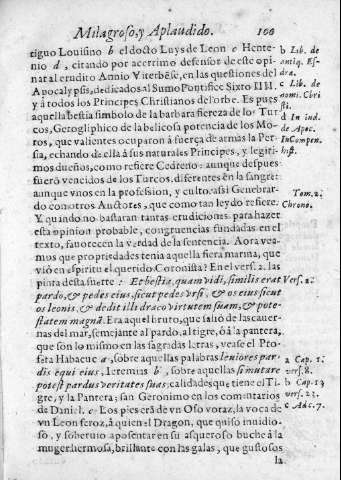 Milagroso, y Aplaudido. 100
tiguo Louisino b el docto Luys de Leon c Hente-
nio d, citando por acerrimo defensor de este opi
nar al erudito Annio Viterbẽse, en las questiones del
Apocalypsis, dedicados al Sumo Pontifice Sixto IIII.
y â todos los Principes Christianos del orbe. Es pues
aquella bestia simbolo de la barbara fiereza de los Tur
cos, Gerogliphico de la belicosa potencia de los Mo-
ros, que valientes ocuparon â fuerça de armas la Per-
sia, echando de ella â sus naturales Principes, y legiti-
mos dueños, como refiere Cedreno: aunque despues
fuerõ vencidos de los Turcos, diferentes ẽn la sangre:
aunque vnos en la profession, y culto. assi Genebrar-
do con otros Auctores, que como tan leydo refiere.
Y quando no bastaran tantas erudiciones para hazer
esta opinion probable, congruencias fundadas en el
texto, fauorecen la verdad de la sentencia. Aora vea-
mos que propriedades tenia aquella fiera marina, que
viô en espiritu el querido Coronista? En el vers. 2. las
pinta desta suerte: Et bestia, quam vidi, similis erat
pardo, & pedes eius, sicut pedes vrsi, & os eius sicut
os leonis, & dedit illi draco virtutem suam, & pote-
statem magnã. Era aquel bruto, que saliô de las cauer-
nas del mar, semejante al pardo, al tigre, ô â la pantera,
que son lo mismo en las sagradas letras, vease el Pro
feta Habacuc a, sobre aquellas palabras leuiores par-
dis equi eius, Ieremias b, sobre aquellas si mutare
potest pardus veritates suas, calidades que tiene el Ti-
gre, y la Pantera; san Geronimo en los comentarios
de Daniel. c Los pies erã de vn Oso voraz, la voca de
vn Leon feroz, â quien el Dragon, que quiso inuidio-
so, y soberuio aposentar en su asqueroso buche â la
muger hermosa, brillante con las galas, que gustosos
la
b Lib. de
antiq. Es-
dra.
c Lib. de
nomi. Chri
sti.
d In ind.
de Apoc.
In Compen.
hist.
Tom. 2.
Chrono.
Vers. 2.
a Cap. 1.
vers. 8.
b Cap. 13
vers. 23.
c Adc. 7.